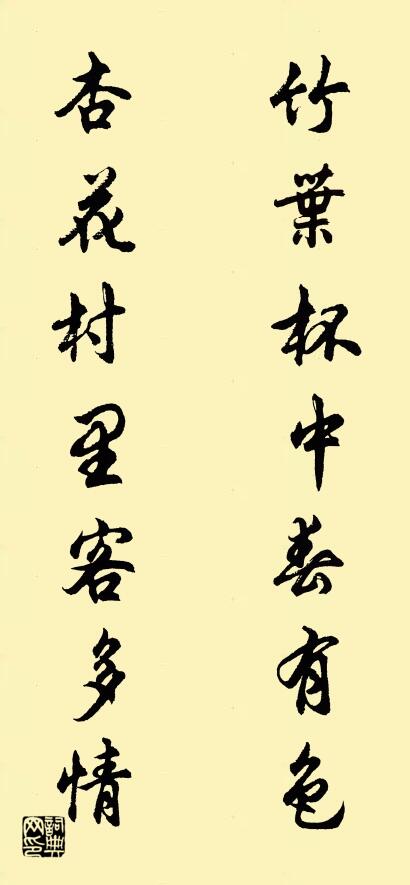 竹葉杯中春有色
杏花村里客多情
詞典网印